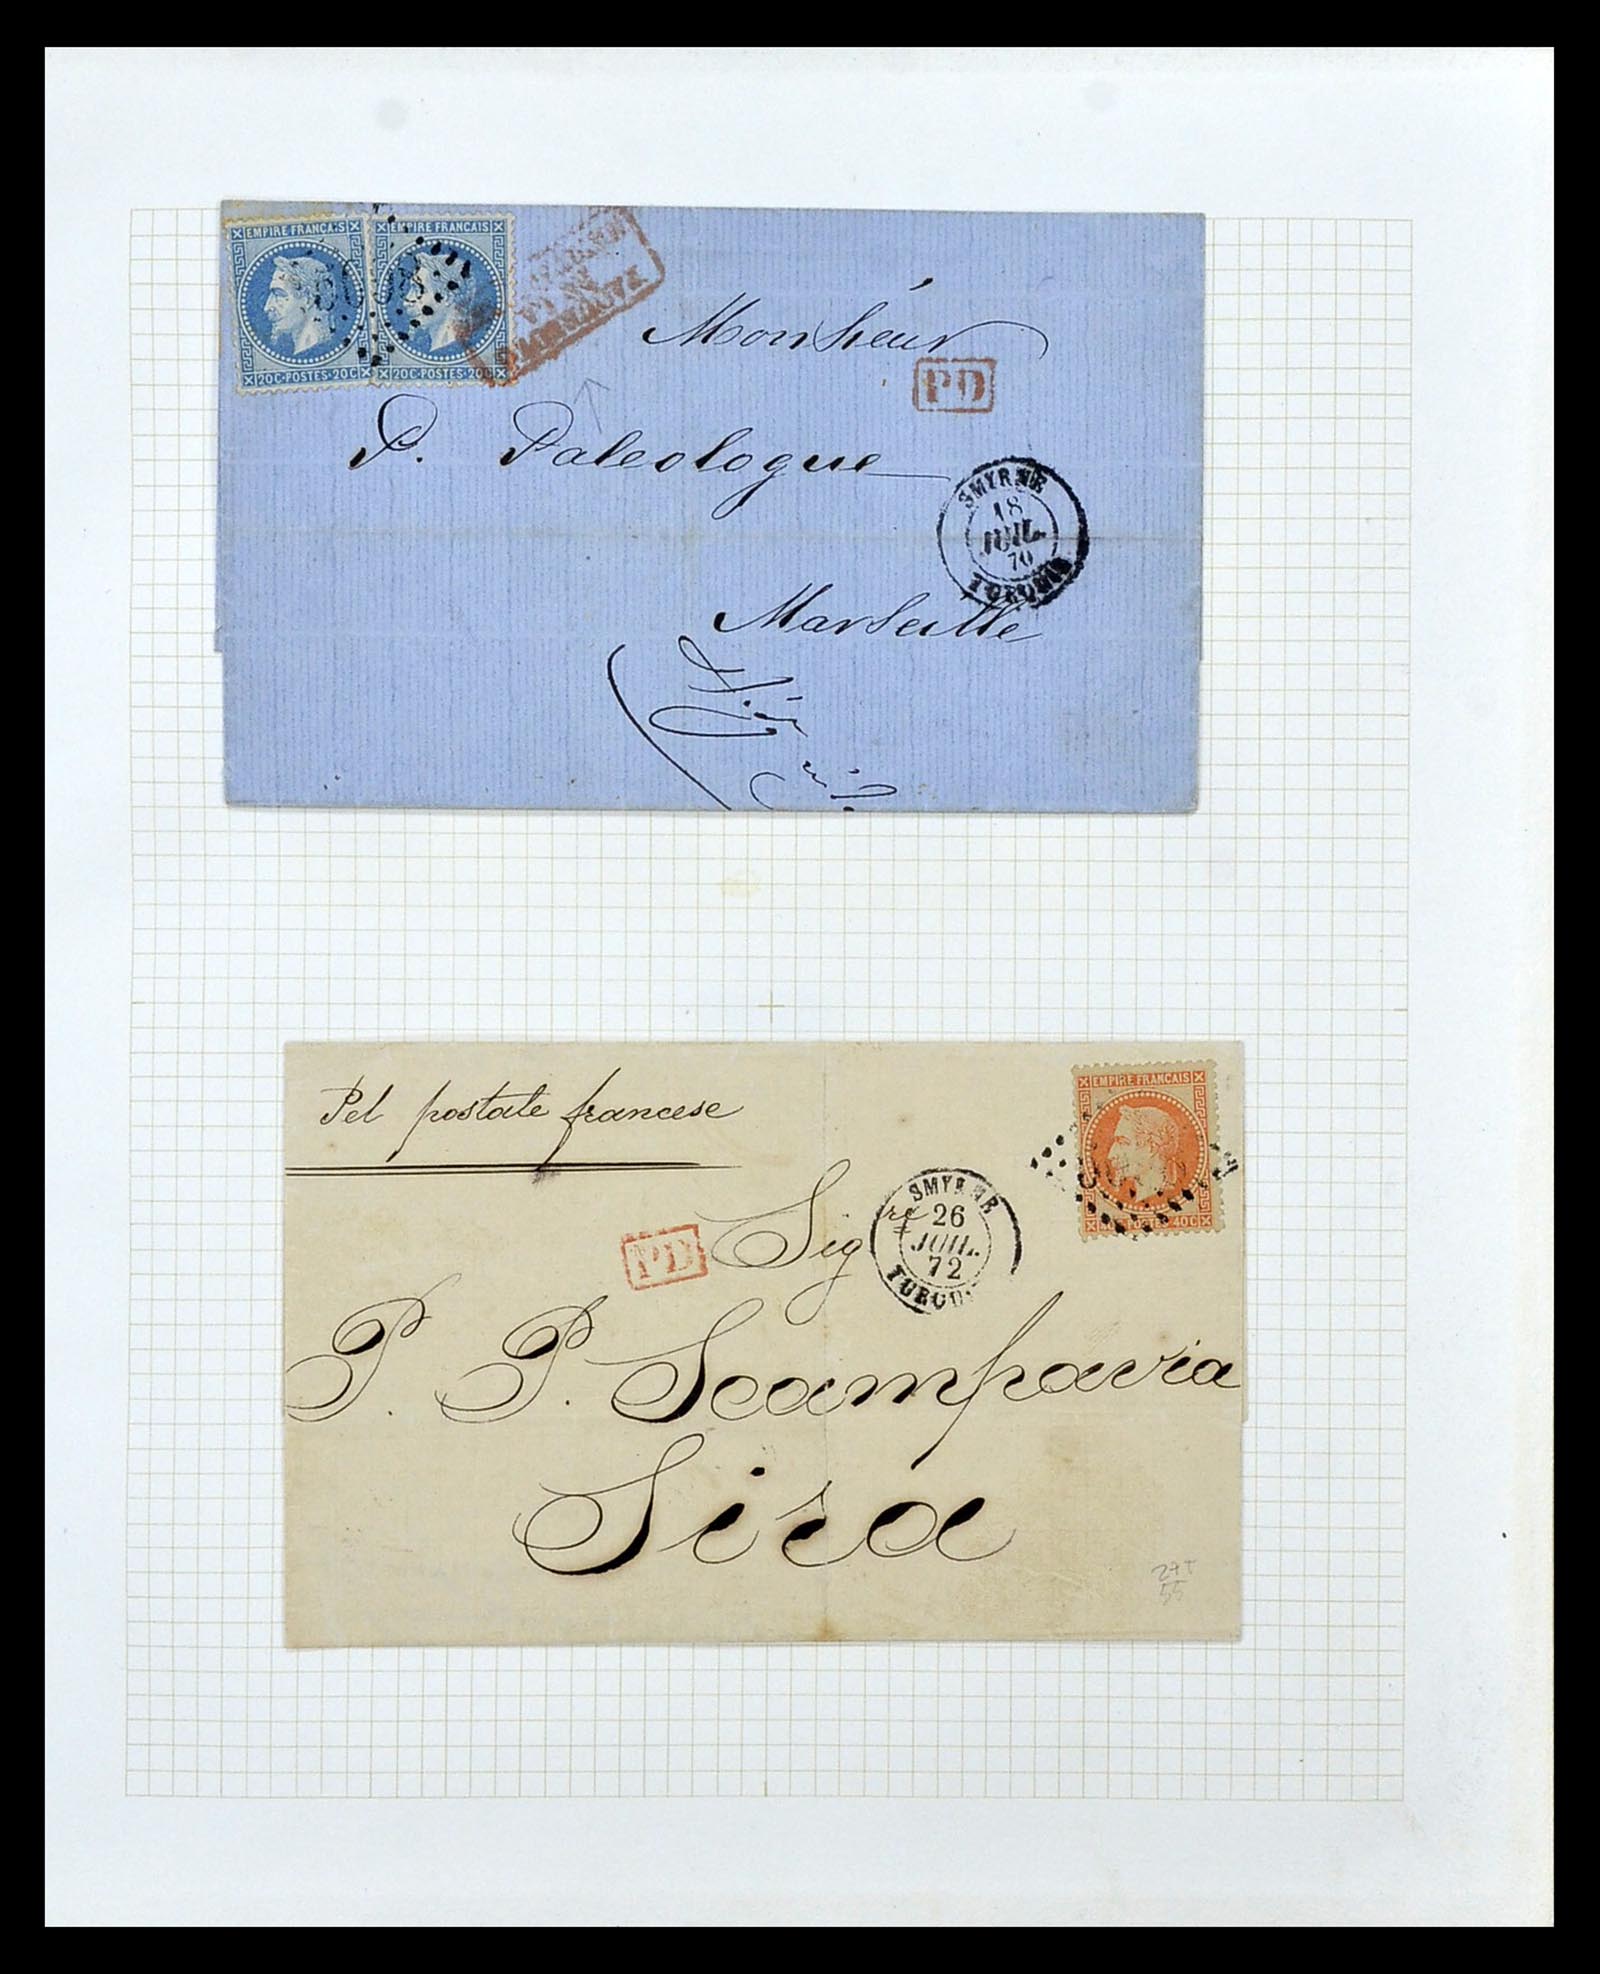 EMPIRE FRANCAIS
EMPIRE FRANCAIS
20C·POSTES·20C
20C·POSTES·20C
PAQUEBOTS
DE LA
Monsieur
PD
P. Paleologue
SMYRNE
18
JUIL.
70
TURQUIE
Marseille
Pel postale francese
EMPIRE FRANCAIS
40C
Sigre
PD
SMYRNE
26
JUIL.
72
TURQU
P. P. Scampavia
Sira